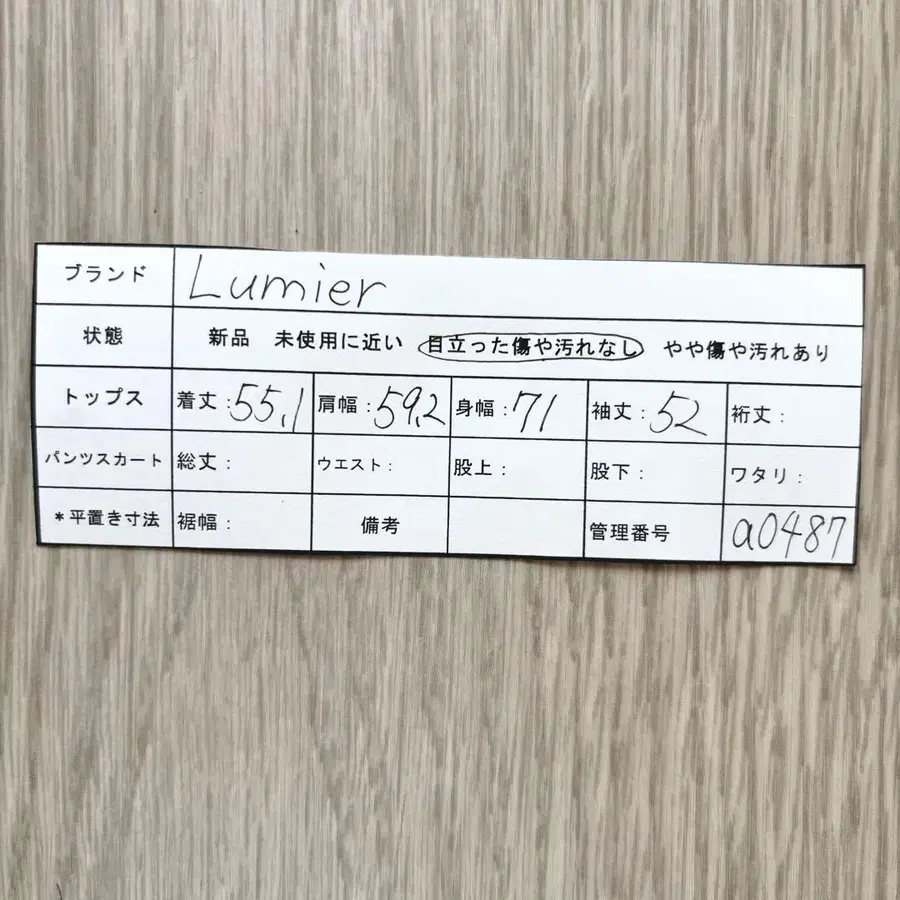 ブランド Lumier
状態 新品 未使用に近い 目立った傷や汚れなし やや傷や汚れあり
トップス 着丈:55.1 肩幅:59.2 身幅:71 袖丈:52 裄丈:
パンツスカート 総丈: ウエスト: 股上: 股下: ワタリ:
*平置き寸法 裾幅: 備考 管理番号 a0487